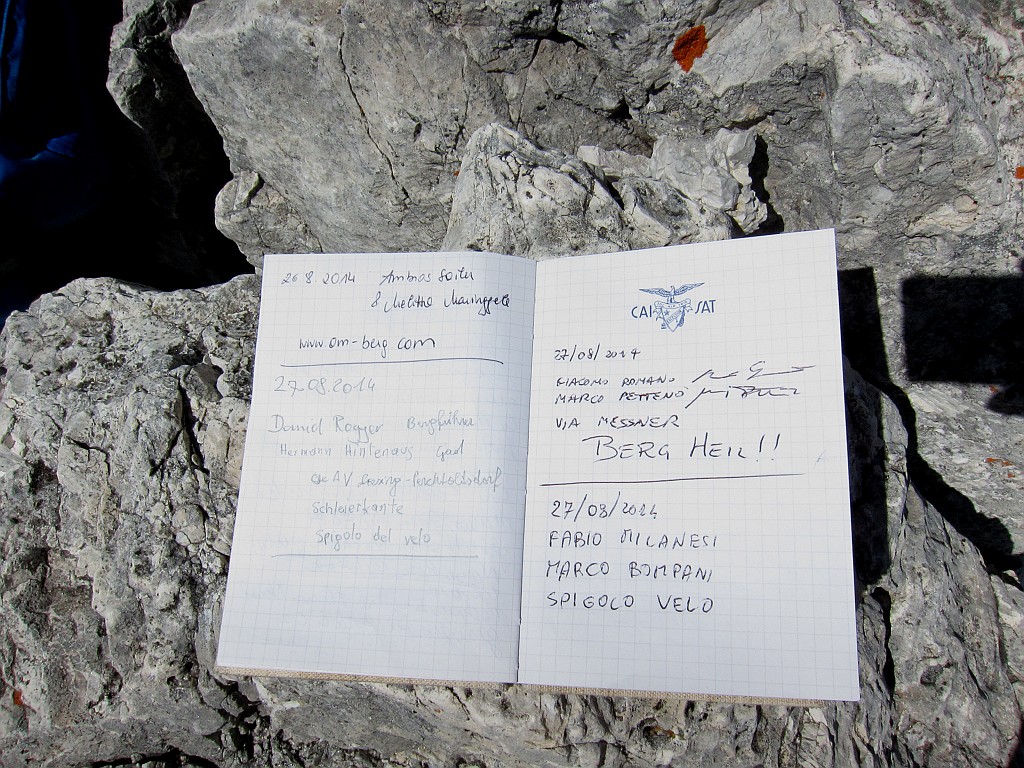 26 8 2014 Ambros
& Melitta
www.am-berg.com
27.08.2014
Daniel Rogger Bergführer
Hermann Hinterhaus Gast
ÖAV Liesing-Perchtoldsdorf
Schleierkante
Spigolo del velo
CAI SAT
27/08/2014
GIACOMO ROMANO
MARCO PETTENO
VIA MESSNER
BERG HEIL!!
27/08/2014
FABIO MILANESI
MARCO BOMPANI
SPIGOLO VELO